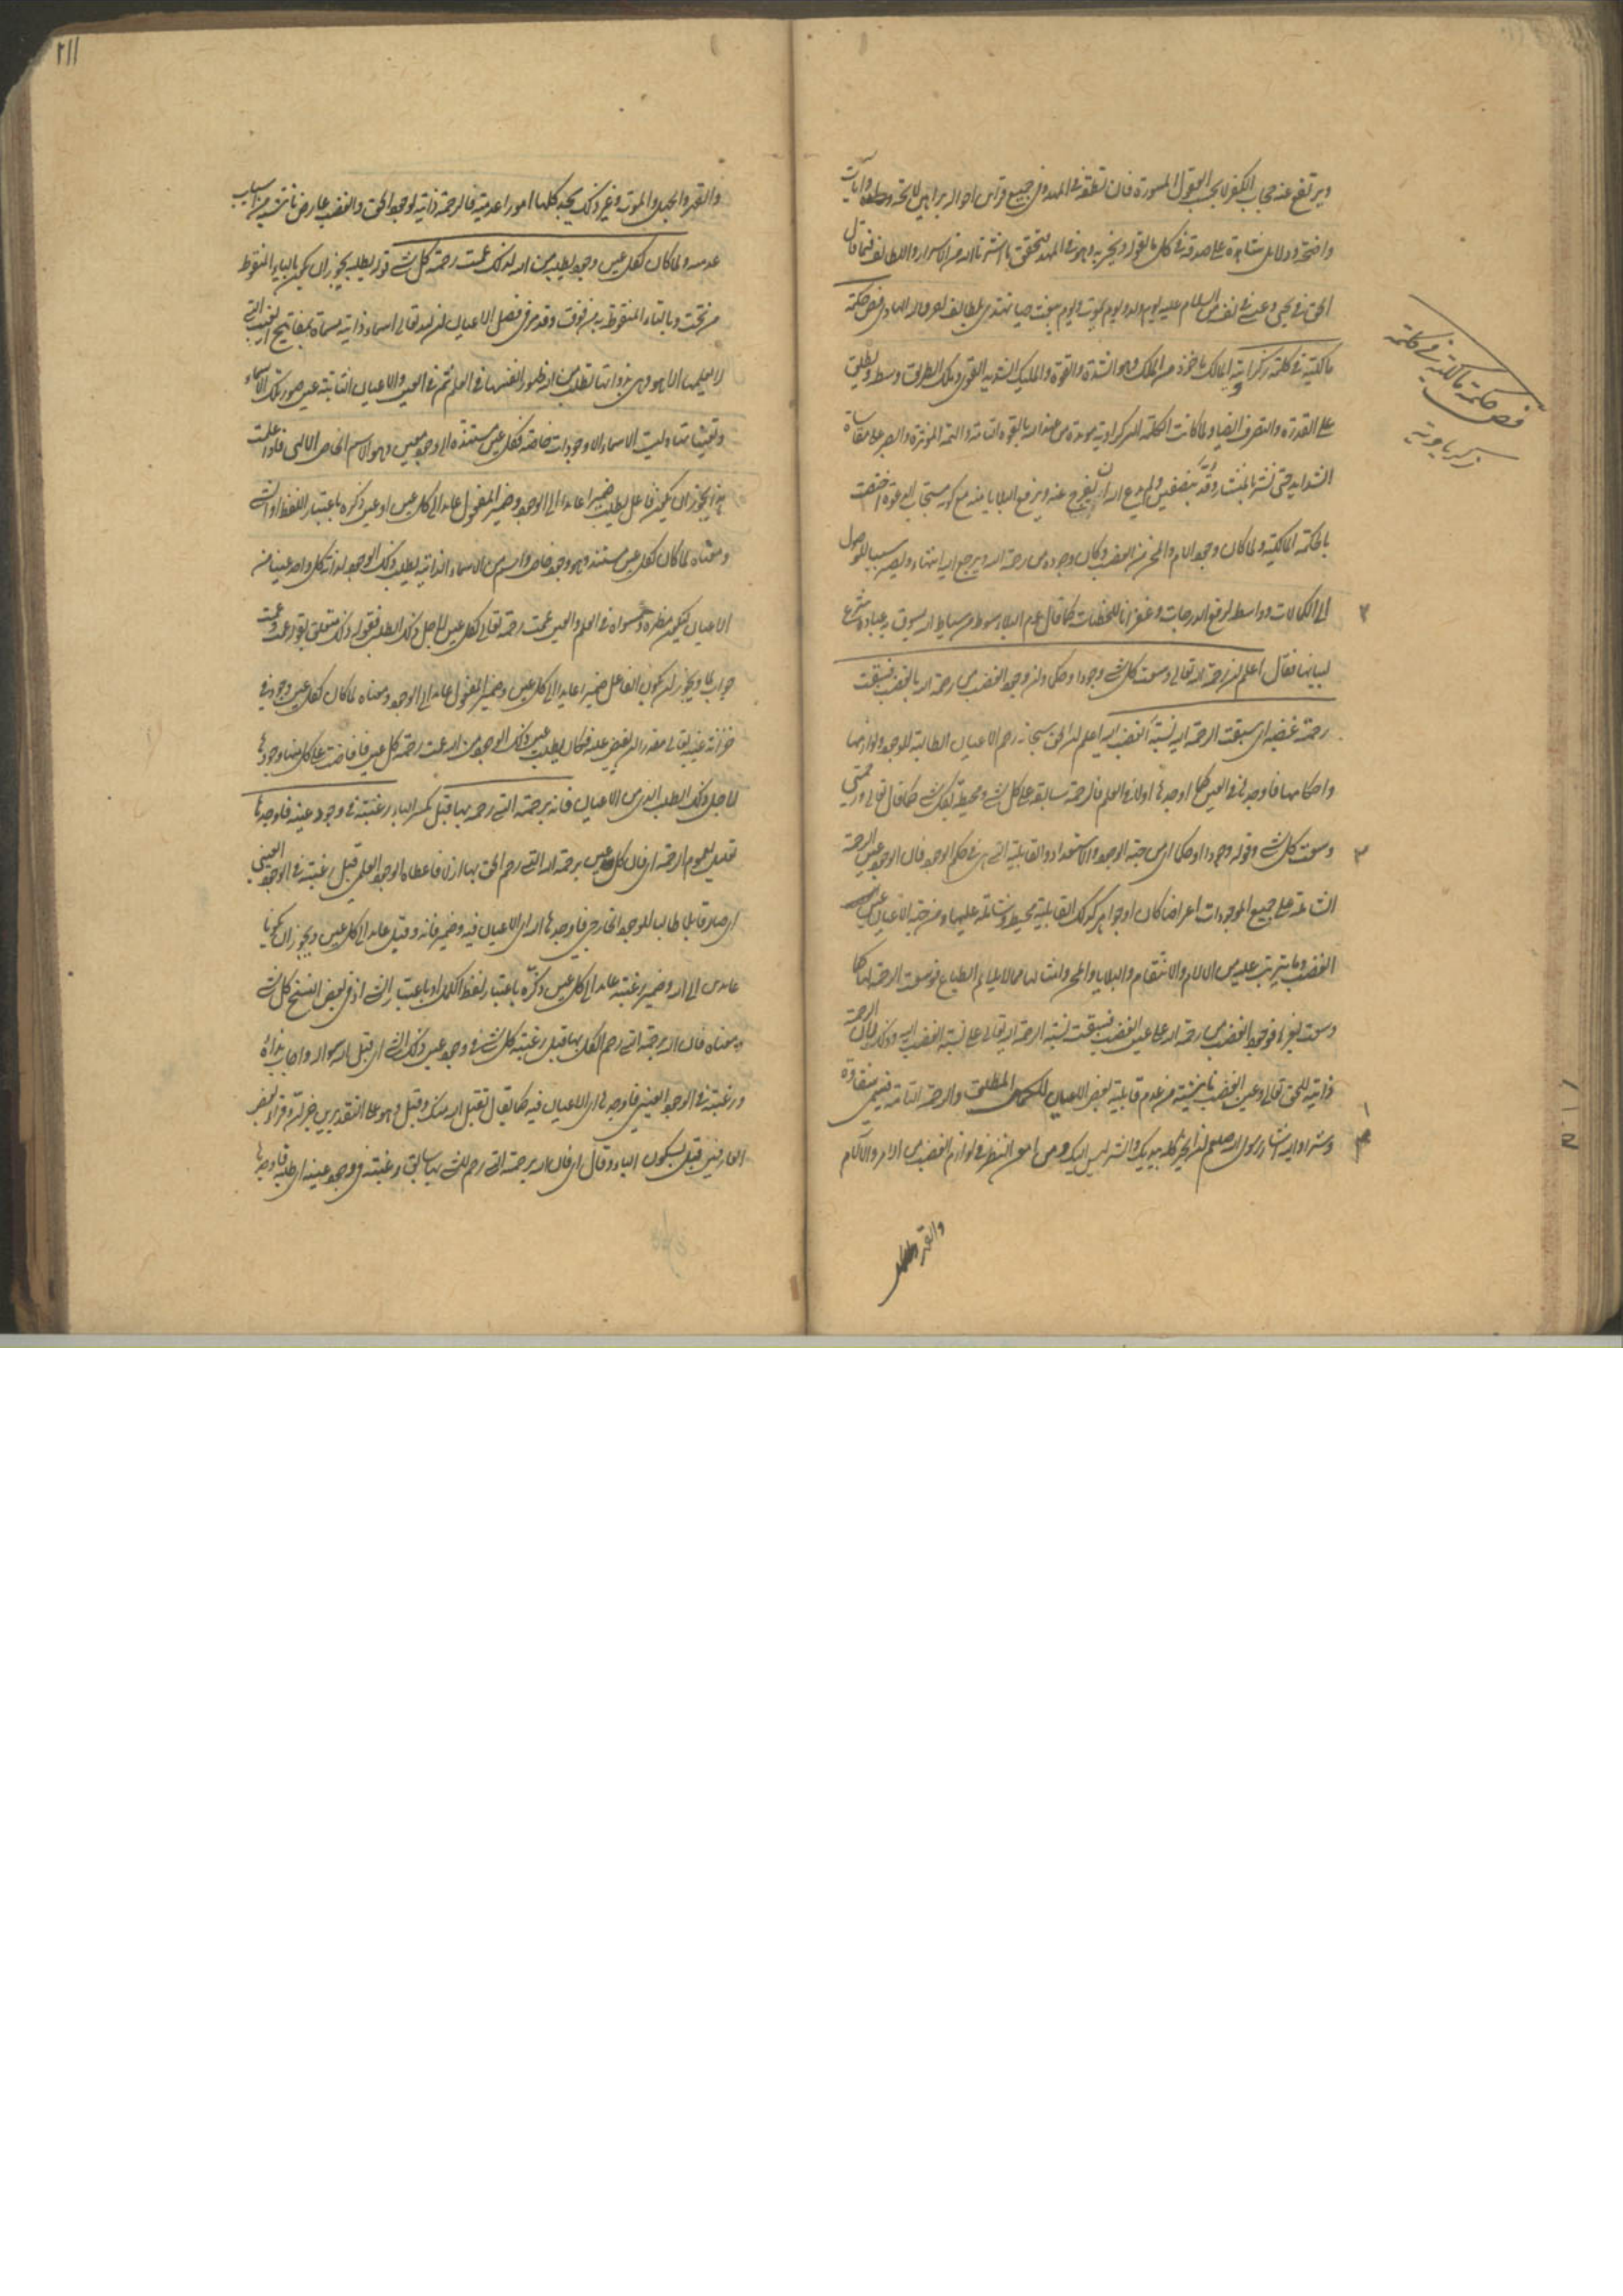 ويرتفع عنه حجاب الكفر لا بحسب العقول المستورة فان نطقه في المهد وفي جميع قراين احواله براهين لائحة وآيات
واضحة ودلايل شاهدة على صدقه في كل ما يقول ويخبر به وهو في المهد فتحقق ما اشرنا اليه من الاسرار واللطايف فيما قال
الحق في يحيى وعيسى في نفسه السلام عليه يوم ولد ويوم يموت ويوم يبعث حيا تهتدي والله الهادي فص حكمة
مالكية في كلمة زكراوية المالك ماخوذ من الملك وهو الشدة والقوة والمليك الشديد القوي وملك الطريق وسطه ويطلق
على القدرة والتصرف ايضا ولما كانت الكلمة الزكراوية مؤيدة من عند الله بالقوة التامة والهمة المؤثرة والصبر على مقاساة
الشدايد حتى نشر بالمنشار وقد بنصفين ولم يدع الله ان يفرج عنه ويرفع البلايا منه مع كونه مستجاب الدعوة اختصت
بالحكمة المالكية ولما كان وجود الالام والمحن من الغضب وكان وجوده من رحمة الله ويرجع اليه انتهاء ويصير سببا للوصول
الى الكمالات وواسطة لرفع الدرجات وغفرانا للخطيات كما قال عم البلاء سوط من سياط الله يسوق به عباده شرع
لبيانها فقال اعلم ان رحمة الله تعالى وسعت كل شيء وجودا وحكما وان وجود الغضب من رحمة الله بالغضب فسبقت
رحمته غضبه اي سبقت الرحمة اليه نسبة الغضب اليه اعلم ان الحق سبحانه رحم الاعيان الطالبة للوجود ولوازمها
واحكامها فاوجدها في العين كما اوجدها اولا في العلم فالرحمة سابقة على كل شيء ومحيطة بكل شيء كما قال تعالى ورحمتي
وسعت كل شيء وقوله وجودا وحكما اي من جهة الوجود والاستعداد والقابلية التي هي في حكم الوجود فان الوجود عين الرحمة
الشاملة على جميع الموجودات اعراضا كان او جواهر وكذلك القابلية محيطة وشاملة عليها ومن جملة الاعيان عين
الغضب وما يترتب عليه من الالام والانتقام والبلايا والمحن وامثالها مما لا يلايم الطباع فوسعت الرحمة لها كما
وسعت لغيرها فوجود الغضب من رحمة الله على عين الغضب فسبقت نسبة الرحمة اليه تعالى على نسبة الغضب اليه وذلك لان الرحمة
ذاتية للحق تعالى وعين الغضب ناشئة من عدم قابلية بعض الاعيان للكمال المطلق والرحمة التامة فيسمى شقاوة
وشرا واليه اشار رسول الله صلعم ان الخير كله بيديك والشر ليس اليك ومن امعن النظر في لوازم الغضب من الامراض والالام
والفقر
فص حكمة مالكية في كلمة
زكرياوية
٢١١
والفقر والجهل والموت وغير ذلك يجد كلها امورا عدمية فالرحمة ذاتية لوجود الحق والغضب عارض ناش من اسباب
عدمية ولما كان لكل عين وجود يطلبه من الله لذلك عمت رحمته كل شيء قوله يطلبه يجوز ان يكون بالياء المنقوط
من تحت وبالتاء المنقوط به من فوق وقد مر في فصل الاعيان ان لله تعالى اسماء ذاتية مسماة بمفاتيح الغيب التي
لا يعلمها الا هو وهي بذواتها تطلب من الله ظهور انفسها في العلم ثم في العين والاعيان الثابتة عين صور تلك الاسماء
وتعيناتها وليست الاسماء الا وجودات خاصة فلكل عين مستندة الى وجود معين وهو الاسم الخاص الالهي فلما علمت
هذا يجوز ان يكون فاعل يطلب ضميرا عايدا الى الوجود وضمير المفعول عايدا الى كل عين او عين ذكره باعتبار اللفظ او الشيء
ومعناه لما كان لكل عين مستند وهو وجود خاص واسم من الاسماء الذاتية يطلب ذلك الوجود لذاته كل واحد عينا من
الاعيان ليكون مظهره ومستواه في العلم والعين عمت رحمته تعالى لكل عين لاجل ذلك الطلب فقوله ذلك متعلق بقوله عمت وعمت
جواب لما ويجوز ان يكون الفاعل ضميرا عايدا الى كل عين وضمير المفعول عايدا الى الوجود ومعناه لما كان لكل عين وجود في
خزانة غيبه تعالى مقدرا ان يفيض عليه فكان يطلب عين ذلك الوجود من الله عمت رحمته كل عين فافاضت على كل عين وجودها
لاجل ذلك الطلب الذي من الاعيان فانه برحمته التي رحمه بها قبل كسر الباء رغبته في وجود عينه فاوجدها
تعليل لعموم الرحمة اي فان كل عين برحمة الله التي رحم الحق بها ازلا فاعطاه الوجود العلمي قبل رغبته في الوجود العيني
اي صار قابلا طالبا للوجود الخارجي فاوجدها الله اي الاعيان فيه وضمير فانه وقبل عايد الى كل عين ويجوز ان يكونا
عايدين الى الله وضمير رغبته عايد الى كل عين وذكره باعتبار لفظ الكل او باعتبار الشيء اذ في بعض النسخ كل شيء
ومعناه فان الله برحمته التي رحم الكل بها قبل رغبة كل شيء في وجود عين ذلك الشيء اي قبل الله سواله واجاب نداه
ورغبته في الوجود العيني فاوجدها اي الاعيان فيه كما يقال تقبل الله منك وقبل وهو على التقديرين خبر ان وقرأ بعض
العارفين قبل بسكون الباء وقال اي فان الله برحمته التي رحم الشيء بها سابق رغبته في وجود عينه اي طلبه فاوجدها